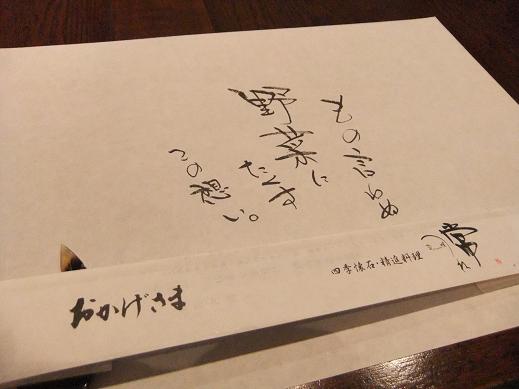 もの言わぬ
野菜に
たくす
この想い。
おかげさま
四季懐石・精進料理